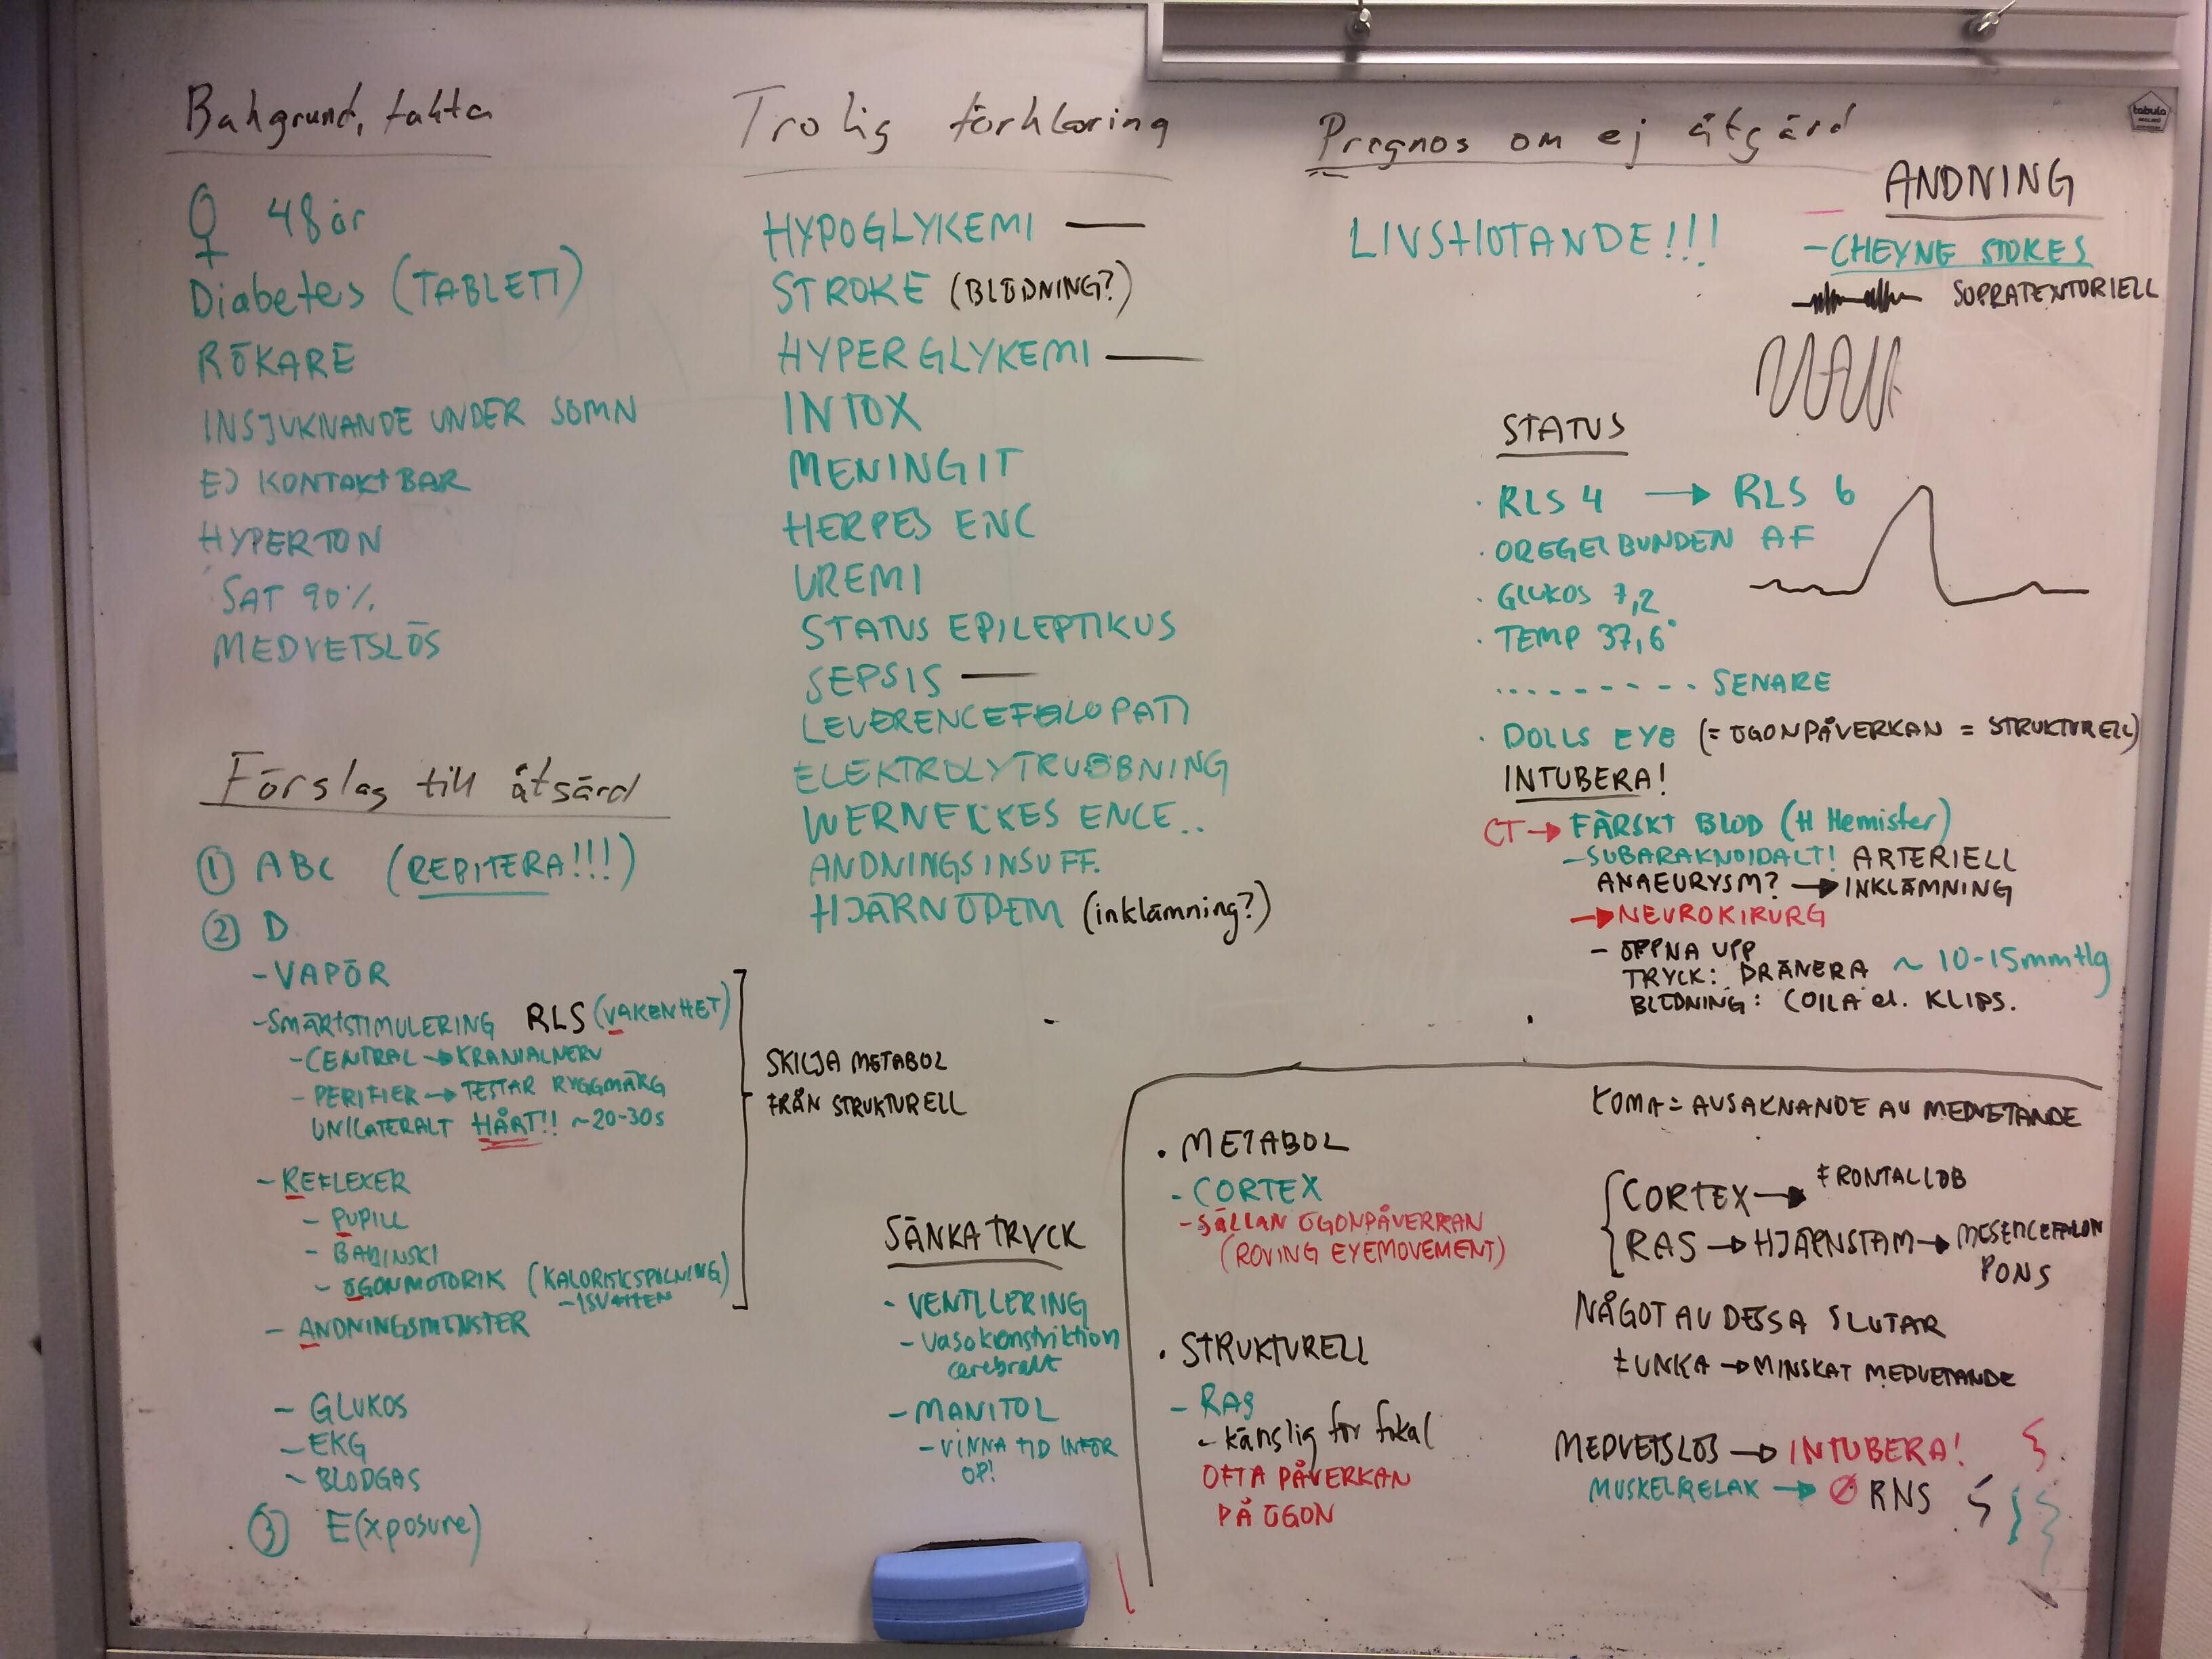 Bakgrund, fakta
♀ 48 år
Diabetes (TABLETT)
RÖKARE
INSJUKNANDE UNDER SÖMN
EJ KONTAKTBAR
HYPERTON
SAT 90%
MEDVETSLÖS
Förslag till åtgärd
① ABC (REPITERA!!!)
② D
- VAPÖR
- SMÄRTSTIMULERING RLS (VAKENHET)
- CENTRAL → KRANIALNERV
- PERIFIER → TESTAR RYGGMÄRG
UNILATERALT HÅRT!! ~20-30s
- REFLEXER
- PUPILL
- BABINSKI
- ÖGONMOTORIK (KALORISKSPOLNING)
- ISVATTEN
- ANDNINGSMÖNSTER
- GLUKOS
- EKG
- BLODGAS
③ E(xposure)
SKILJA METABOL
FRÅN STRUKTURELL
Trolig förklaring
HYPOGLYKEMI —
STROKE (BLÖDNING?)
HYPERGLYKEMI —
INTOX
MENINGIT
HERPES ENC
UREMI
STATUS EPILEPTIKUS
SEPSIS —
LEVERENCEFALOPATI
ELEKTROLYTRUBBNING
WERNECKES ENCE..
ANDNINGSINSUFF.
HJÄRNÖDEM (inklämning?)
SÄNKA TRYCK
- VENTILERING
- Vasokonstriktion
cerebralt
- MANITOL
- VINNA TID INFÖR
OP!
Prognos om ej åtgärd
LIVSHOTANDE!!!
ANDNING
- CHEYNE STOKES
SUPRATENTORIELL
STATUS
· RLS 4 → RLS 6
· OREGELBUNDEN AF
· GLUKOS 7,2
· TEMP 37,6°
......... SENARE
· DOLLS EYE (= ÖGONPÅVERKAN = STRUKTURELL)
INTUBERA!
CT → FÄRSKT BLOD (H Hemisfer)
- SUBARAKNOIDALT! ARTERIELL
ANAEURYSM? → INKLÄMNING
→ NEUROKIRURG
- ÖPPNA UPP
TRYCK: DRÄNERA ~ 10-15mmHg
BLÖDNING: COILA el. KLIPS.
· METABOL
- CORTEX
- SÄLLAN ÖGONPÅVERKAN
(ROVING EYEMOVEMENT)
· STRUKTURELL
- RAS
- känslig för fokal
OFTA PÅVERKAN
PÅ ÖGON
KOMA = AVSAKNANDE AV MEDVETANDE
CORTEX → FRONTALLOB
RAS → HJÄRNSTAM → MESENCEFALON
PONS
NÅGOT AV DESSA SLUTAR
FUNKA → MINSKAT MEDVETANDE
MEDVETSLÖS → INTUBERA!
MUSKELRELAX → Ø RNS
tabula